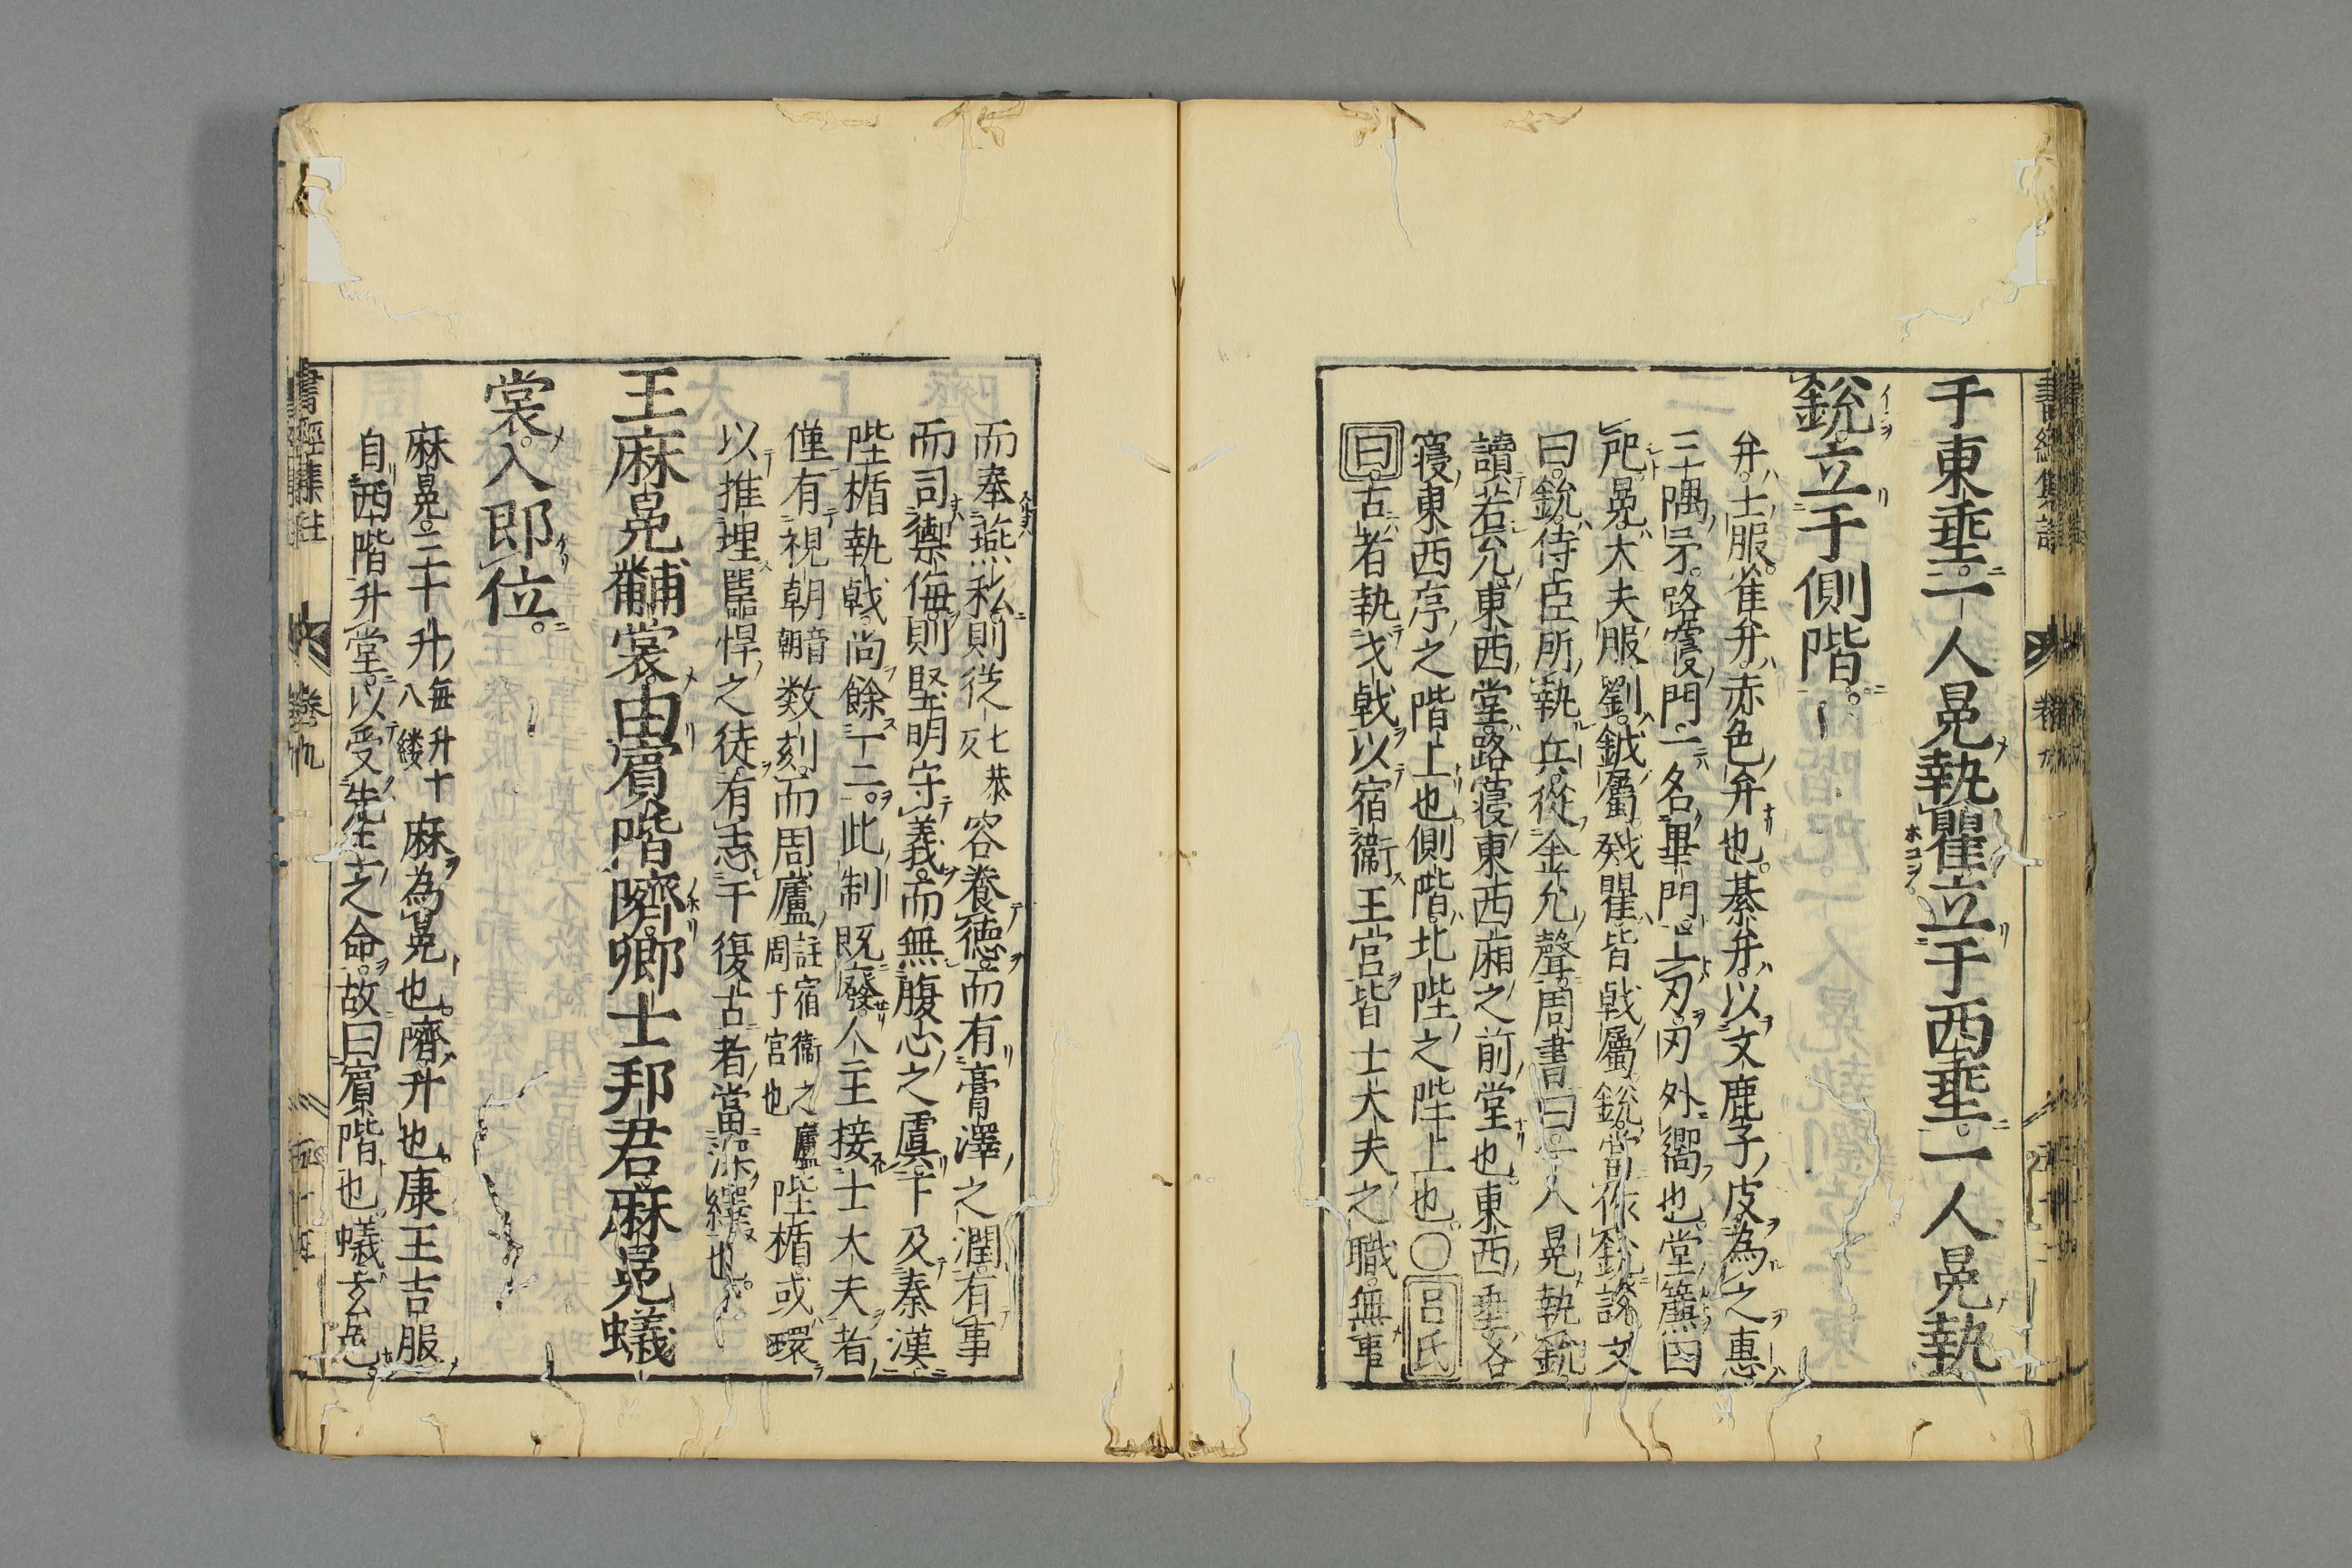 于東垂一人冕執瞿立于西垂一人冕執
銳立于側階
弁士服雀弁赤色弁也綦弁以文鹿子皮為之惠
三隅矛路寢門一名畢門上刃刃外嚮也堂簾曰
戺冕大夫服劉鉞屬戣瞿皆戟屬銳當作鈗說文
曰鈗侍臣所執兵從金允聲周書曰一人冕執鈗
讀若允東西堂路寢東西廂之前堂也東西垂路
寢東西序之階上也側階北陛之陛上也〇呂氏
曰古者執戈戟以宿衞王宮皆士大夫之職無事
而奉燕私則從七恭反容養德而有膏澤之潤有事
而司禦侮則堅明守義而無腹心之虞下及秦漢
陛楯執戟尚餘一二此制既廢人主接士大夫者
僅有視朝音朝數刻而周廬註宿衞之廬周于宮也陛楯或環
以推埋嚚悍之徒有志于復古者當深繹也
王麻冕黼裳由賓階隮卿士邦君麻冕蟻
裳入即位
麻冕三十升每升十八縷麻為冕也隮升也康王吉服
自西階升堂以受先王之命故曰賓階也蟻玄色
書經集註
卷九